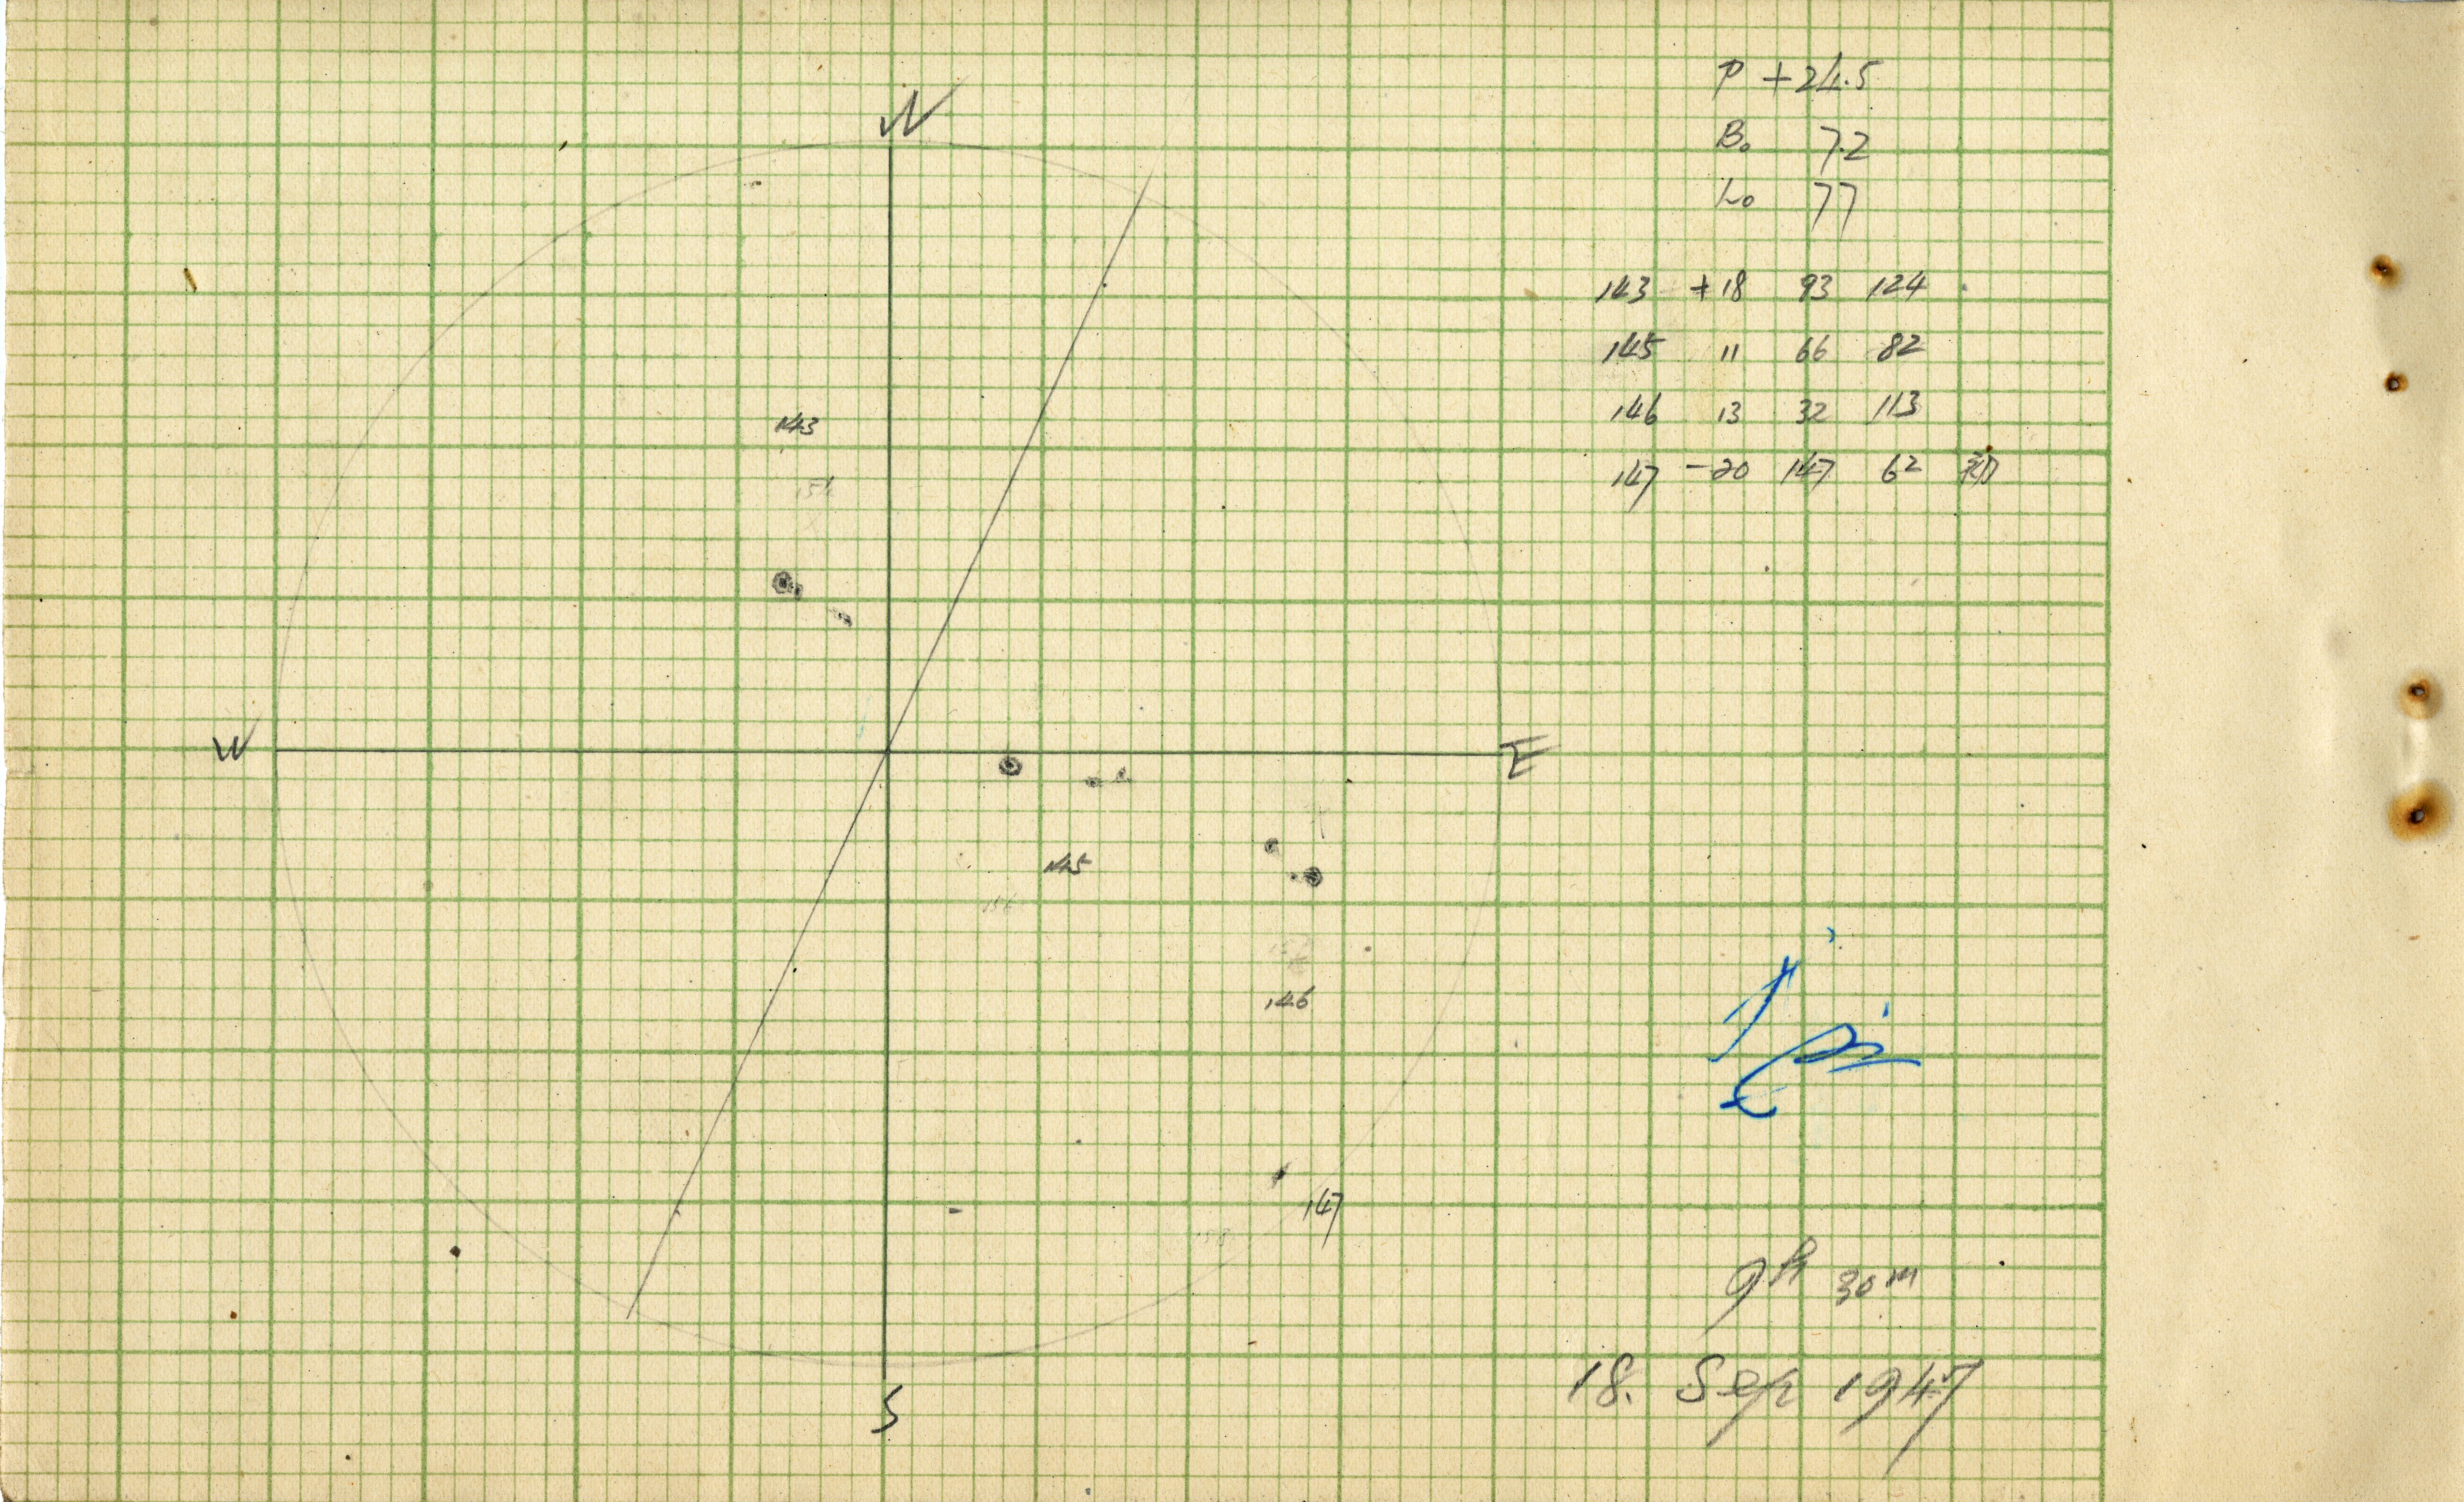 N
P +24.5
B₀ 7.2
L₀ 77
143 +18 93 124
145 11 66 82
146 13 32 113
147 -20 147 62
143
W
E
145
146
147
9h 30m
18. Sep 1947
S